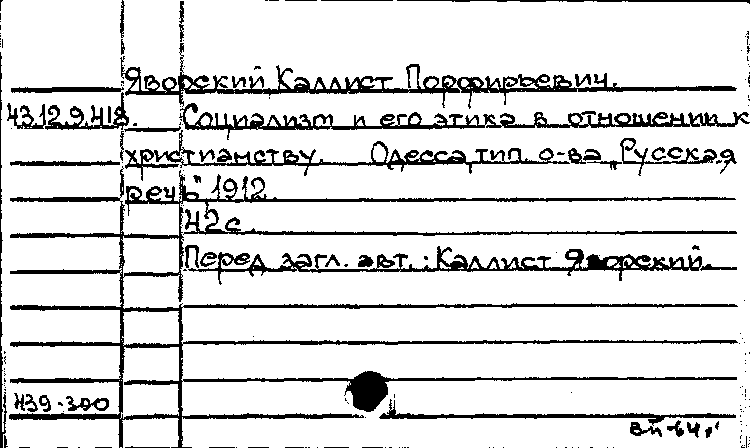 Яворский Каллист Порфирьевич.
43.12.9.418. Социализм и его этика в отношении к
христианству. Одесса, тип. о-ва „Русская
речь", 1912.
42 с.
Перед загл. авт.: Каллист Яворский.
439-300